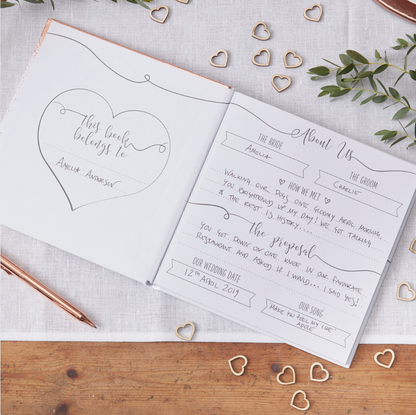 This book
belongs to
AMELIA ANDERSON
About Us
THE BRIDE
AMELIA
THE GROOM
CHARLIE
HOW WE MET
WALKING OUR DOGS ONE GLOOMY APRIL MORNING...
YOU BRIGHTENED UP MY DAY! WE GOT TALKING
& THE REST IS HISTORY....
The Proposal
YOU GOT DOWN ON ONE KNEE IN OUR FAVOURITE
RESTAURANT AND ASKED IF I WOULD... I SAID YES!
OUR WEDDING DATE
12TH APRIL 2019
OUR SONG
MAKE YOU FEEL MY LOVE
ADELE